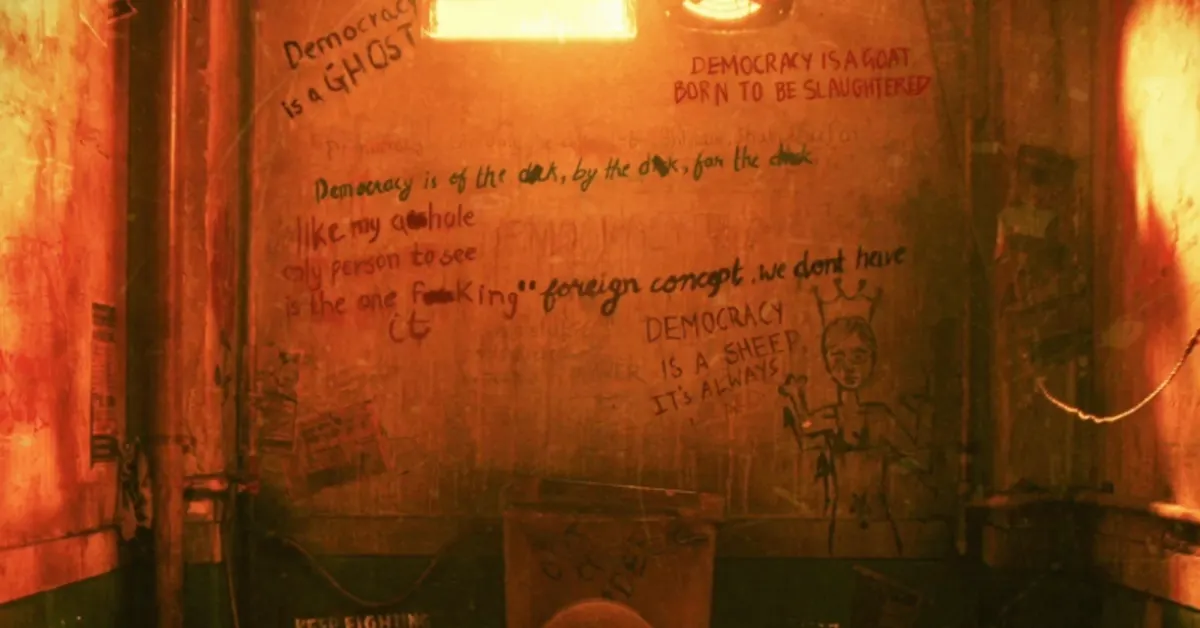 Democracy
is a GHOST
DEMOCRACY IS A GOAT
BORN TO BE SLAUGHTERED
Democracy is of the d●●k, by the d●●k, for the d●●k
like my a●●hole
only person to see
is the one f●●king
it
"foreign concept. we dont have
DEMOCRACY
IS A SHEEP
IT'S ALWAYS
KEEP FIGHTING